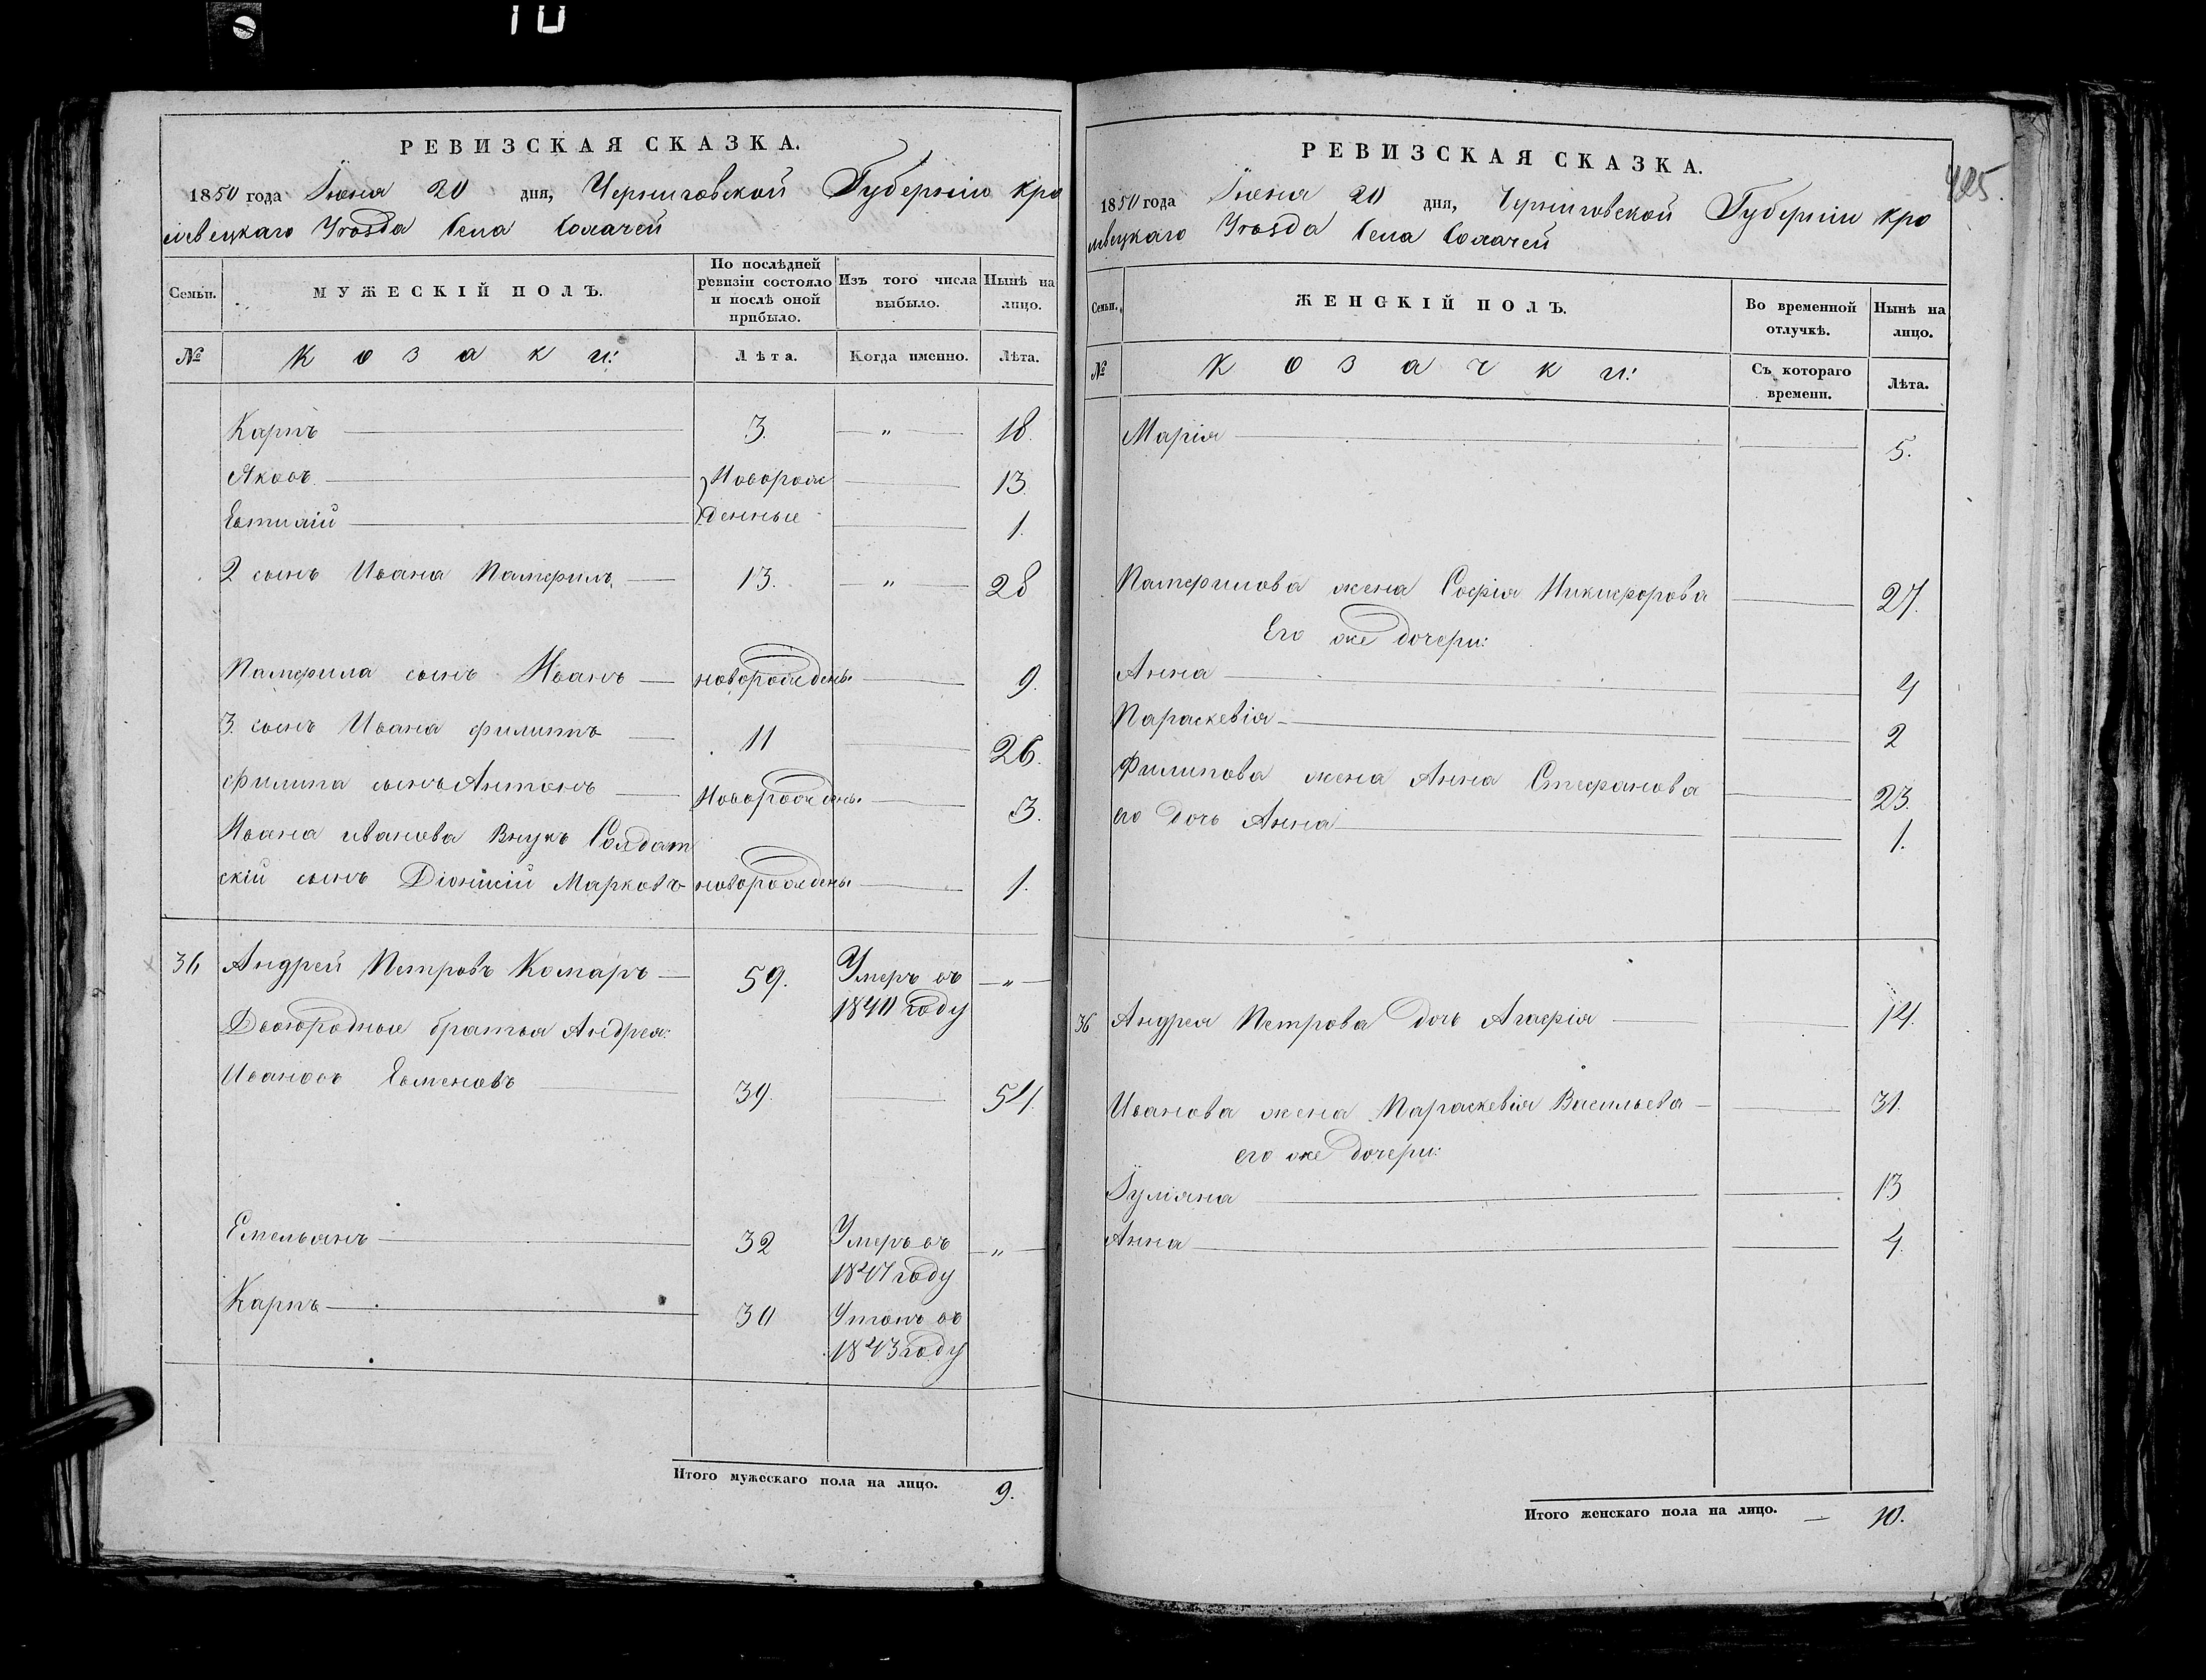 РЕВИЗСКАЯ СКАЗКА.
1850 года Іюня 20 дня, Черниговской Губерніи Кро
левецкаго Уѣзда Села Собачей
Семьи. МУЖЕСКІЙ ПОЛЪ. По послѣдней ревизіи состояло и послѣ оной прибыло. Изъ того числа выбыло. Нынѣ на лицо.
№ Козаки: Лѣта. Когда именно. Лѣта.
Карпъ 3. " 18.
Яковъ Новорож 13.
Евтихій денные 1.
2 сынъ Ивана Патерилъ 13. " 28
Патерила сынъ Иванъ новорожденъ. 9.
3. сынъ Ивана Филиппъ 11 26.
Филипа сынъ Антонъ Новорожденъ. 3.
Ивана иванова Внукъ Солдат
скій сынъ Діонисій Марковъ новорожденъ. 1.
36 Андрей Петровъ Комаръ 59. Умеръ въ "
1840 году
Двоюродные братья Андрея:
Ивановъ Евменовъ 39. 54.
Емельянъ 32 Умеръ въ "
1847 году
Карпъ 30 Утонъ въ
1843 году
Итого мужескаго пола на лицо. 9.
РЕВИЗСКАЯ СКАЗКА.
425.
1850 года Іюня 20 дня, Черниговской Губерніи Кро
левецкаго Уѣзда Села Собачей
Семьи. ЖЕНСКІЙ ПОЛЪ. Во временной отлучкѣ. Нынѣ на лицо.
№ Козачки: Съ котораго времени. Лѣта.
Марія 5.
Патерилова жена Софія Никифорова 27.
Его же дочери:
Анна 4
Параскевія 2
Филипова жена Анна Стефанова 23.
его дочь Анна 1.
36 Андрея Петрова дочь Агафія 14.
Иванова жена Параскевія Васильева 31.
его же дочери:
Іуліяна 13
Анна 4.
Итого женскаго пола на лицо. 10.